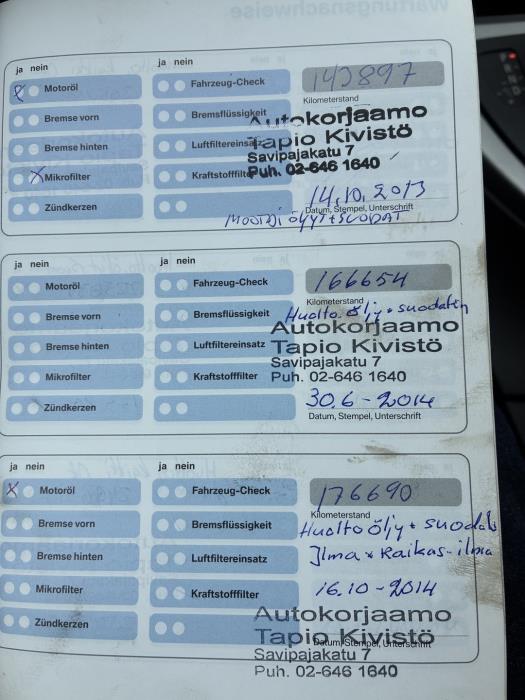 Wartungsnachweise
ja nein
ja nein
Motoröl
Fahrzeug-Check
Kilometerstand
Bremse vorn
Bremsflüssigkeit
Autokorjaamo
Bremse hinten
Luftfiltereinsatz
Tapio Kivistö
Savipajakatu 7
X Mikrofilter
Kraftstofffilter
Puh. 02-646 1640
14.10.2013
Zündkerzen
Datum, Stempel, Unterschrift
ja nein
ja nein
Motoröl
Fahrzeug-Check
166654
Kilometerstand
Bremse vorn
Bremsflüssigkeit
Huolto öljy + suodatin
Autokorjaamo
Bremse hinten
Luftfiltereinsatz
Tapio Kivistö
Savipajakatu 7
Mikrofilter
Kraftstofffilter
Puh. 02-646 1640
30.6-2014
Zündkerzen
Datum, Stempel, Unterschrift
ja nein
ja nein
X Motoröl
Fahrzeug-Check
176690
Kilometerstand
Bremse vorn
Bremsflüssigkeit
Huolto öljy + suodat
Bremse hinten
Luftfiltereinsatz
Ilma + Raikas-ilma
Mikrofilter
Kraftstofffilter
16.10-2014
Autokorjaamo
Zündkerzen
Tapio Kivistö
Datum, Stempel, Unterschrift
Savipajakatu 7
Puh. 02-646 1640